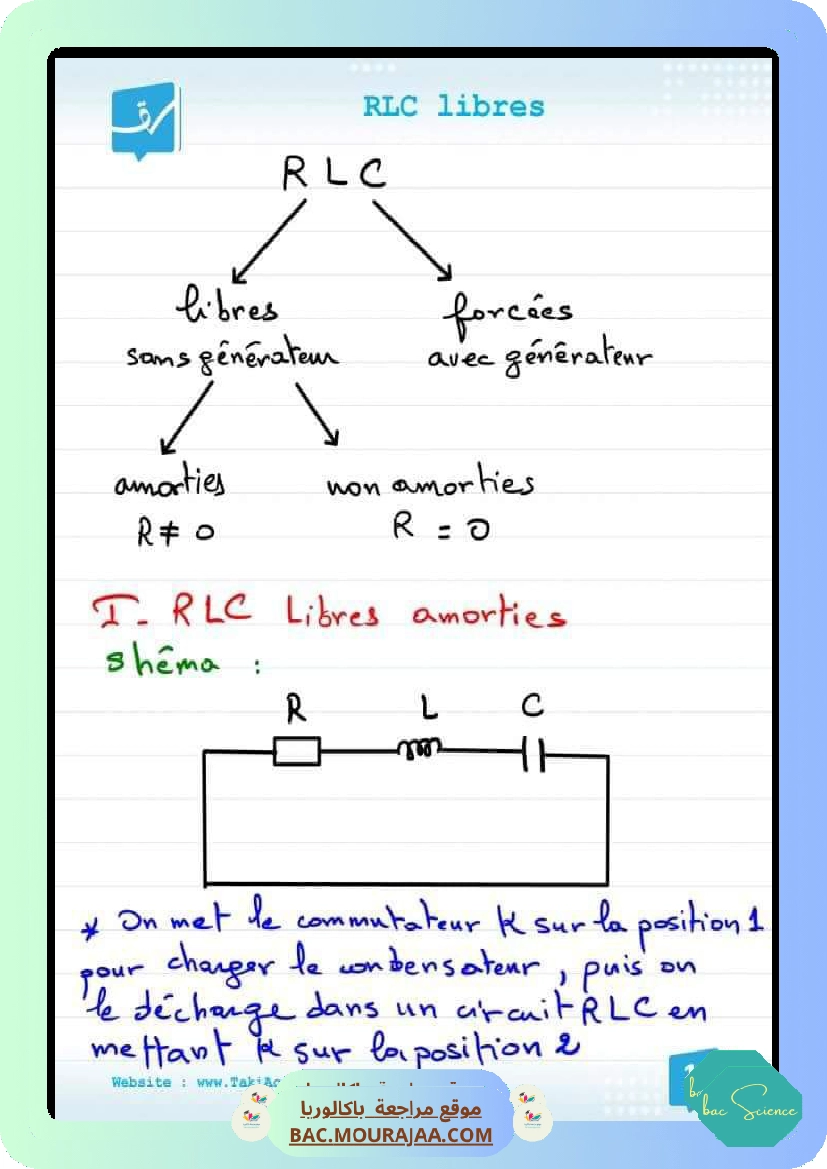 RLC libres
R L C
libres forcées
sans générateur avec générateur
amorties non amorties
R ≠ 0 R = 0
I - RLC Libres amorties
shéma :
R L C
* On met le commutateur K sur la position 1
pour charger le condensateur, puis on
le décharge dans un circuit RLC en
mettant K sur la position 2
Website : www.TakiAc
موقع مراجعة باكالوريا
BAC.MOURAJAA.COM
bac Science